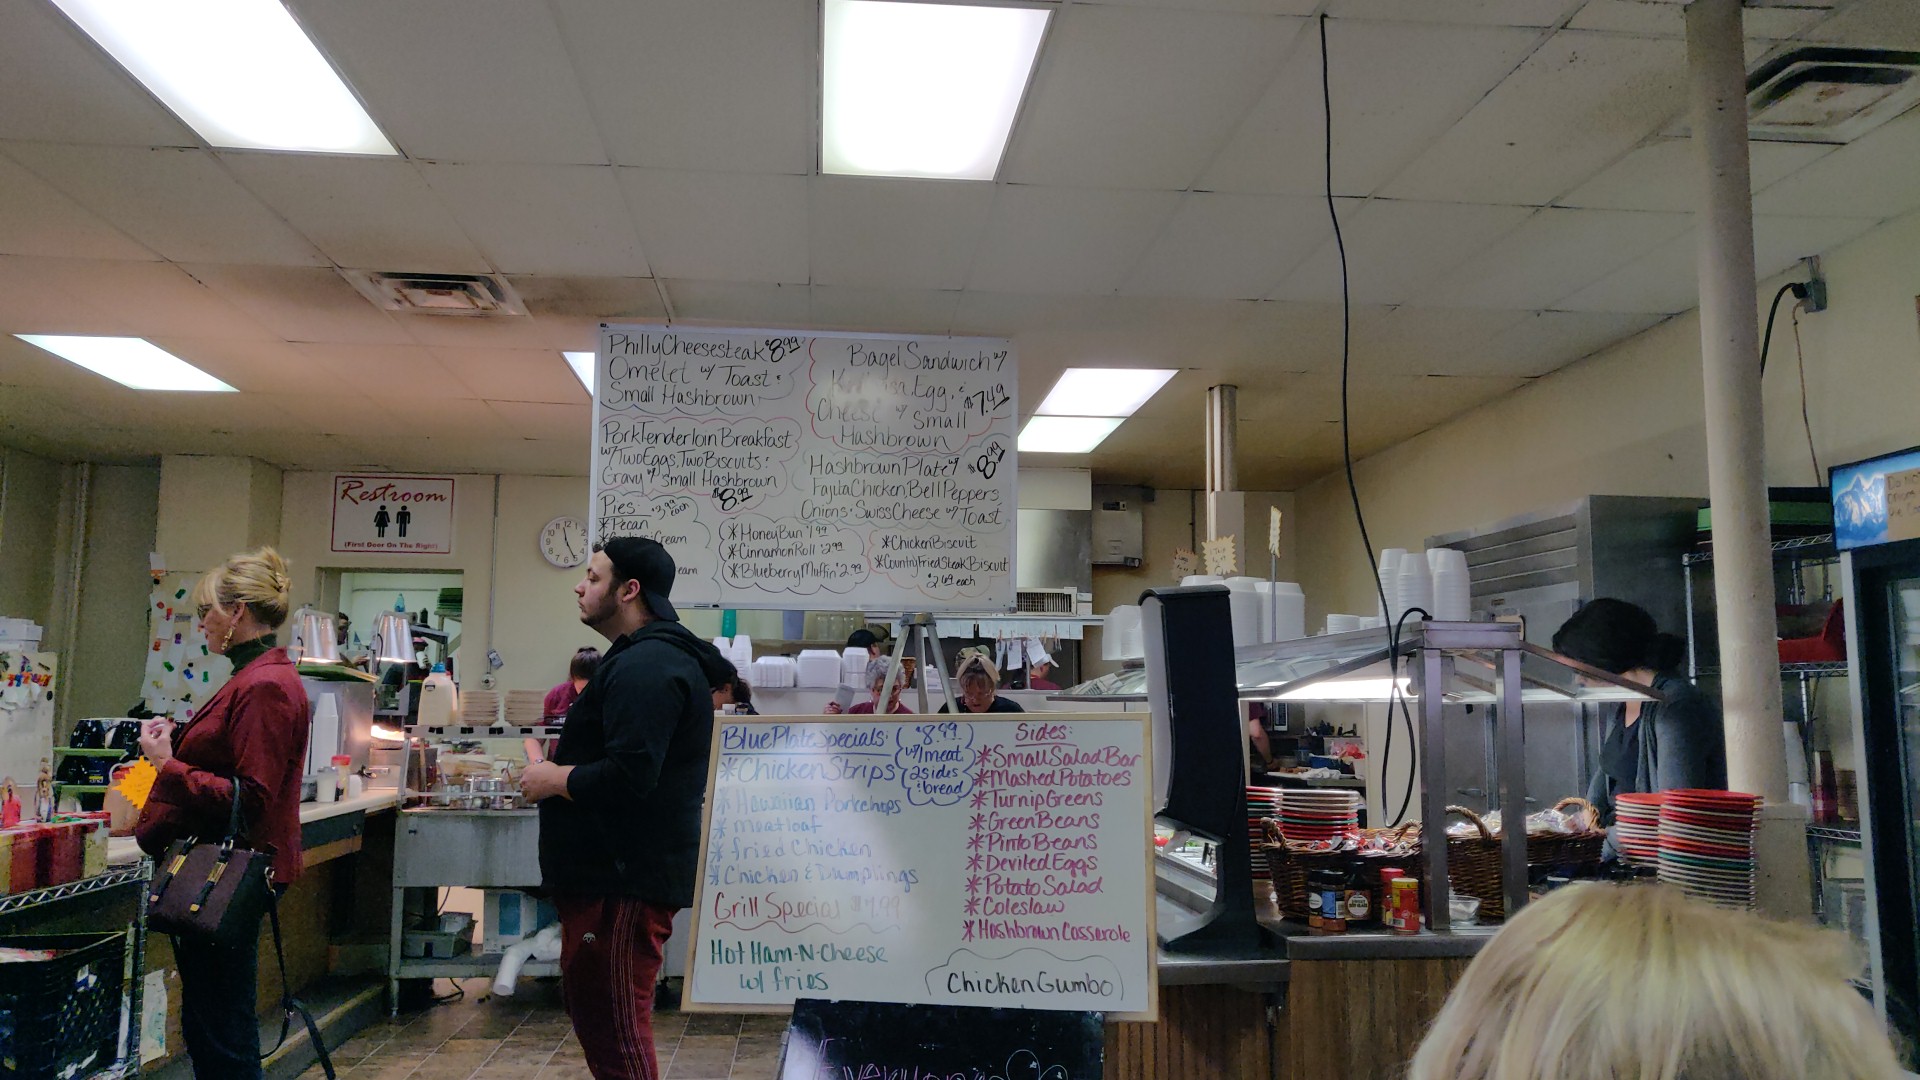 Philly Cheesesteak $8.99
Omelet w/ Toast &
Small Hashbrown
Bagel Sandwich w/
Egg, &
Cheese w/ Small $7.49
Hashbrown
Pork Tenderloin Breakfast
w/ Two Eggs, Two Biscuits &
Gravy w/ small Hashbrown
$8.99
Hashbrown Plate w/ $8.99
Fajita Chicken, Bell Peppers,
Onions & Swiss Cheese w/ Toast
Pies: $3.99 each
*Pecan
Cream
eam
*Honey Bun $1.99
*Cinnamon Roll $2.99
*Blueberry Muffin $2.99
*Chicken Biscuit
*Country Fried Steak Biscuit
$2.69 each
Restroom
(First Door On The Right)
Blue Plate Specials:
$8.99
w/ meat
2 sides
& bread
*Chicken Strips
*Hawaiian Porkchops
*meatloaf
*fried Chicken
*Chicken & Dumplings
Grill Special $7.99
Hot Ham-N-Cheese
w/ fries
Sides:
*Small Salad Bar
*Mashed Potatoes
*Turnip Greens
*Green Beans
*Pinto Beans
*Deviled Eggs
*Potato Salad
*Coleslaw
*Hashbrown Casserole
Chicken Gumbo